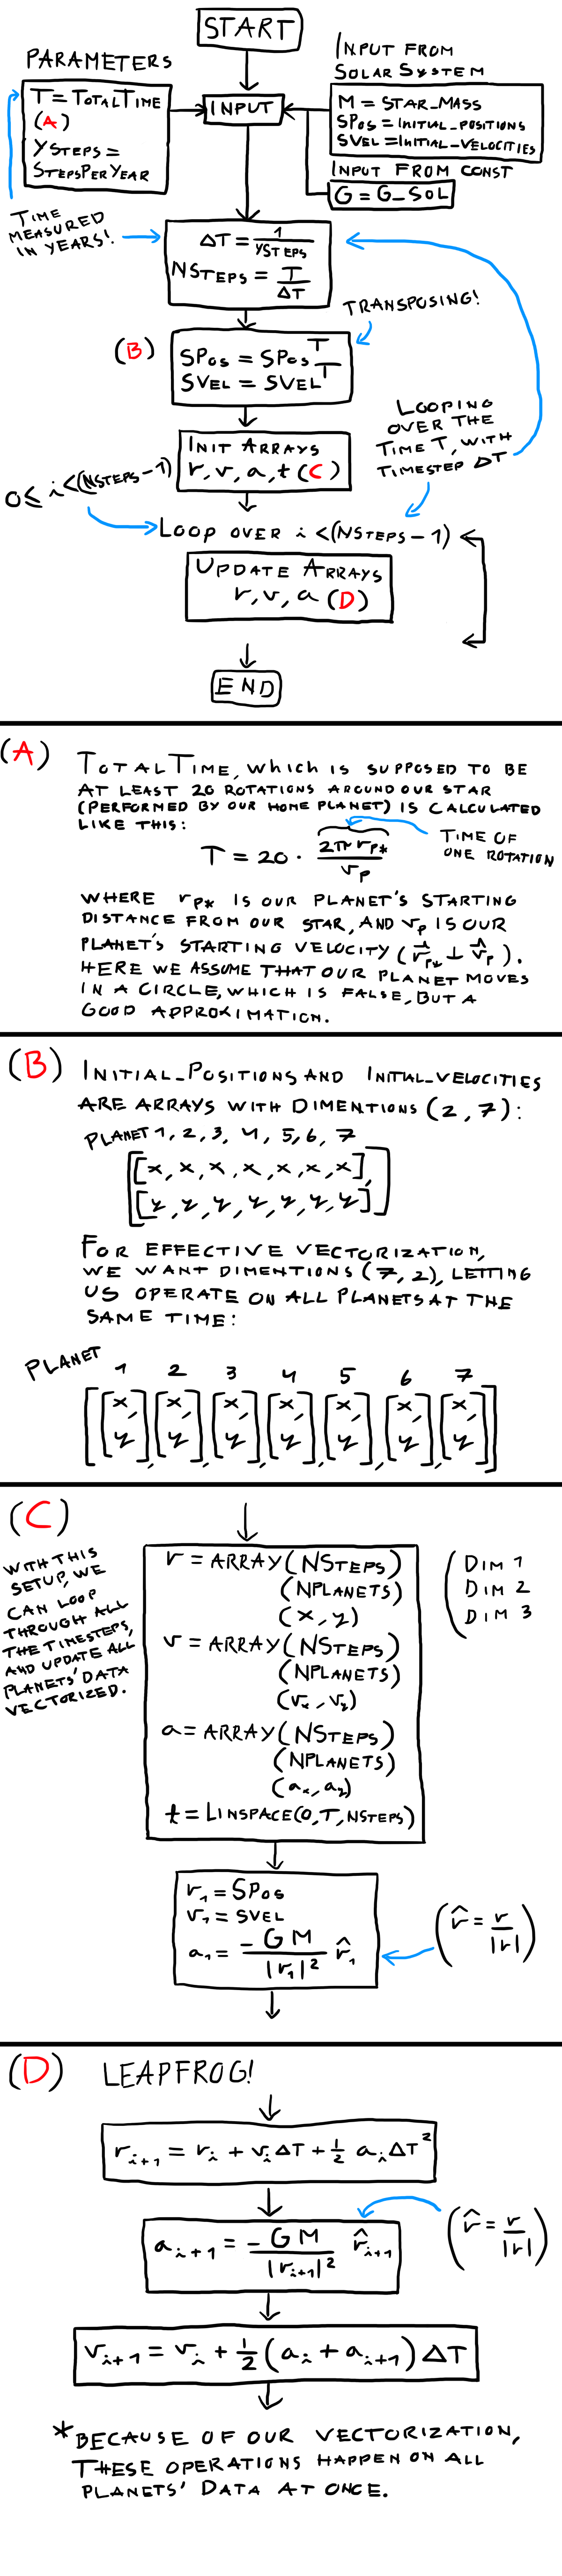 START
PARAMETERS
T = TOTALTIME
(A)
YSTEPS =
STEPSPERYEAR
INPUT
INPUT FROM
SOLAR SYSTEM
M = STAR_MASS
SPOS = INITIAL_POSITIONS
SVEL = INITIAL_VELOCITIES
INPUT FROM CONST
G = G_SOL
TIME
MEASURED
IN YEARS!
ΔT = 1/YSTEPS
NSTEPS = T/ΔT
TRANSPOSING!
(B)
SPOS = SPOS^T
SVEL = SVEL^T
LOOPING
OVER THE
TIME T, WITH
TIMESTEP ΔT
INIT ARRAYS
r, v, a, t (C)
0 ≤ i < (NSTEPS - 1)
LOOP OVER i < (NSTEPS - 1)
UPDATE ARRAYS
r, v, a (D)
END
(A)
TOTALTIME, WHICH IS SUPPOSED TO BE
AT LEAST 20 ROTATIONS AROUND OUR STAR
(PERFORMED BY OUR HOME PLANET) IS CALCULATED
LIKE THIS:
T = 20 · 2πr_p*/v_p
TIME OF
ONE ROTATION
WHERE r_p* IS OUR PLANET'S STARTING
DISTANCE FROM OUR STAR, AND v_p IS OUR
PLANET'S STARTING VELOCITY (r̂_p* ⊥ v̂_p).
HERE WE ASSUME THAT OUR PLANET MOVES
IN A CIRCLE, WHICH IS FALSE, BUT A
GOOD APPROXIMATION.
(B)
INITIAL_POSITIONS AND INITIAL_VELOCITIES
ARE ARRAYS WITH DIMENTIONS (2, 7):
PLANET 1, 2, 3, 4, 5, 6, 7
[[x, x, x, x, x, x, x],
[y, y, y, y, y, y, y]]
FOR EFFECTIVE VECTORIZATION,
WE WANT DIMENTIONS (7, 2), LETTING
US OPERATE ON ALL PLANETS AT THE
SAME TIME:
PLANET 1 2 3 4 5 6 7
[[x, y], [x, y], [x, y], [x, y], [x, y], [x, y], [x, y]]
(C)
WITH THIS
SETUP, WE
CAN LOOP
THROUGH ALL
THE TIMESTEPS,
AND UPDATE ALL
PLANETS' DATA
VECTORIZED.
r = ARRAY (NSTEPS)
(NPLANETS)
(x, y)
v = ARRAY (NSTEPS)
(NPLANETS)
(v_x, v_y)
a = ARRAY (NSTEPS)
(NPLANETS)
(a_x, a_y)
t = LINSPACE(0, T, NSTEPS)
DIM 1
DIM 2
DIM 3
r_1 = SPOS
v_1 = SVEL
a_1 = -GM/|r_1|^2 r̂_1
(r̂ = r/|r|)
(D)
LEAPFROG!
r_i+1 = r_i + v_i ΔT + 1/2 a_i ΔT^2
a_i+1 = -GM/|r_i+1|^2 r̂_i+1
(r̂ = r/|r|)
v_i+1 = v_i + 1/2 (a_i + a_i+1) ΔT
*BECAUSE OF OUR VECTORIZATION,
THESE OPERATIONS HAPPEN ON ALL
PLANETS' DATA AT ONCE.